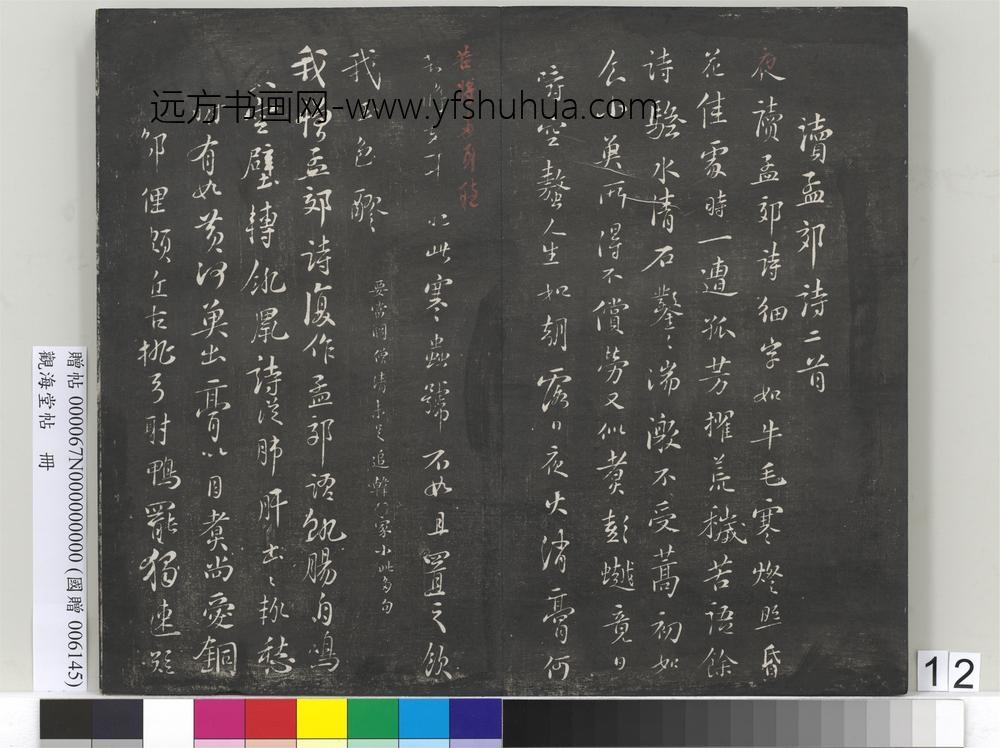 讀孟郊詩二首
夜讀孟郊詩細字如牛毛寒燈照昏
花佳處時一遭孤芳擢荒穢苦語餘
詩騷水清石鑿〻湍激不受篙初如
食小魚所得不償勞又似煮彭𧑅竟日
持空螯人生如朝露日夜火消膏何
苦將兩耳聽
此寒蟲號不如且置之飲
我玉色醪
要當鬭僧清未足追韓豪小此多句
我憎孟郊詩復作孟郊語飢腸自鳴
空壁轉飢鼠詩從肺肝出〻輒愁
有如黃河魚出膏以自煮尚愛銅
鄙俚頗近古桃弓射鴨罷獨速短
远方书画网-www.yfshuhua.com
贈帖 000067N000000000 (國贈 006145)
觀海堂帖 冊
12